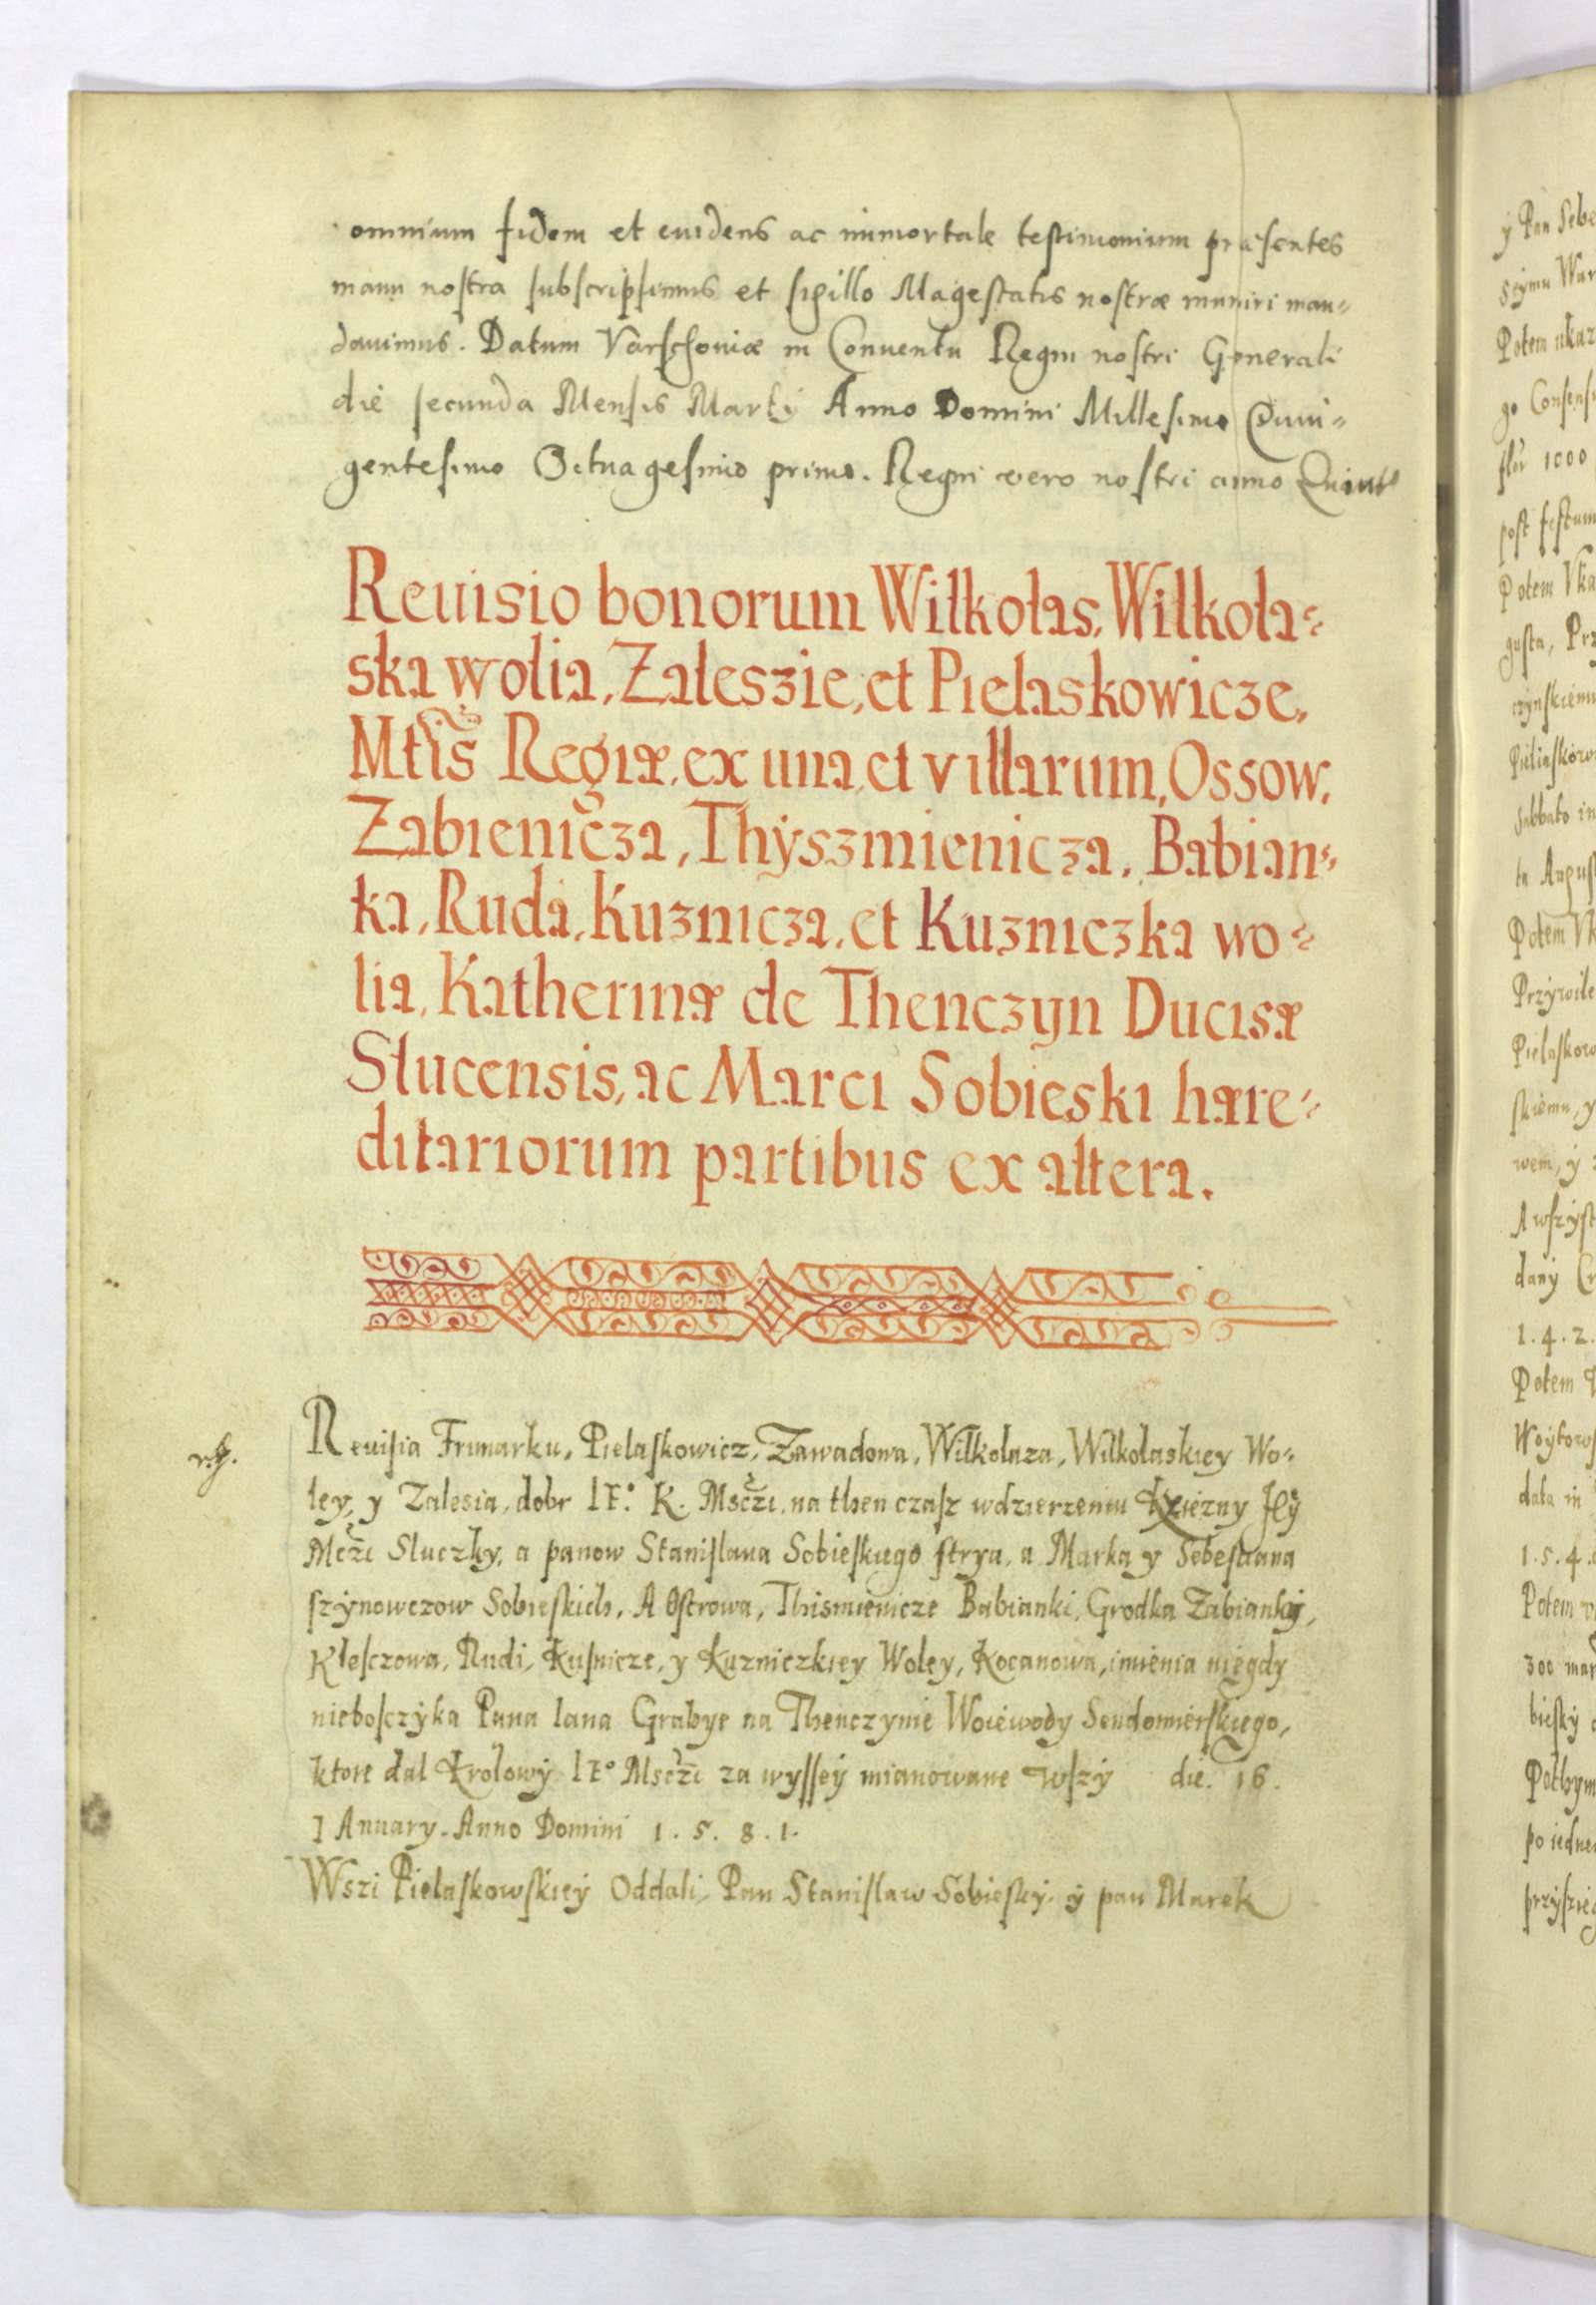 omnium fidem et euidens ac immortale testimonium præsentes
manu nostra subscripsimus et sigillo Magestatis nostræ muniri man=
dauimus. Datum Varschoviæ in Conuentu Regni nostri Generali
die secunda Mensis Martij Anno Domini Millesimo Quin=
gentesimo Octuagesimo primo. Regni vero nostri anno Quinto
Reuisio bonorum Wilkolas, Wilkola=
ska wolia, Zaleszie, et Pielaskowicze,
Mtis Regiæ, ex una, et villarum, Ossow,
Zabienicza, Thÿszmienicza, Babian=
ka, Ruda, Kuznicza, et Kuzniczka wo=
lia, Katherinæ de Thenczyn Ducisæ
Slucensis, ac Marci Sobieski hære=
ditariorum partibus ex altera.
Reuisia Frimarku, Pielaskowicz, Zawadowa, Wilkolaza, Wilkolaskiey Wo=
ley, y Zalesia, dobr IE° K. Msczi. na then czasz wdzierzeniu Kxiezny Jeÿ
Mczi Sluczky, a panow Stanislaua Sobieskiego strya, a Marka y Sebestiana
szÿnowczow Sobieskich, A Ostrowa, Thismienicze Babianki, Grodka Zabianky,
Klesczowa, Rudi, Kusnicze, y Kuzniczkiey Woley, Kocanowa, imienia niegdy
niebosczÿka Pana Iana Grabye na Thenczynie Woiewody Sendomierskiego,
ktore dal Krolowÿ IE° Msczi za wysseÿ mianowane wszÿ die. 16.
IAnuary. Anno Domini 1. 5. 8. 1.
Wszi Pielaskowskieÿ Oddali, Pan Stanislaw Sobieskÿ. ÿ pan Marek
ÿ Pan
Potem
1000
post festum
Potem
Potem
Pielaskow
1.4.2.
Potem
1.5.4.
Potem
300